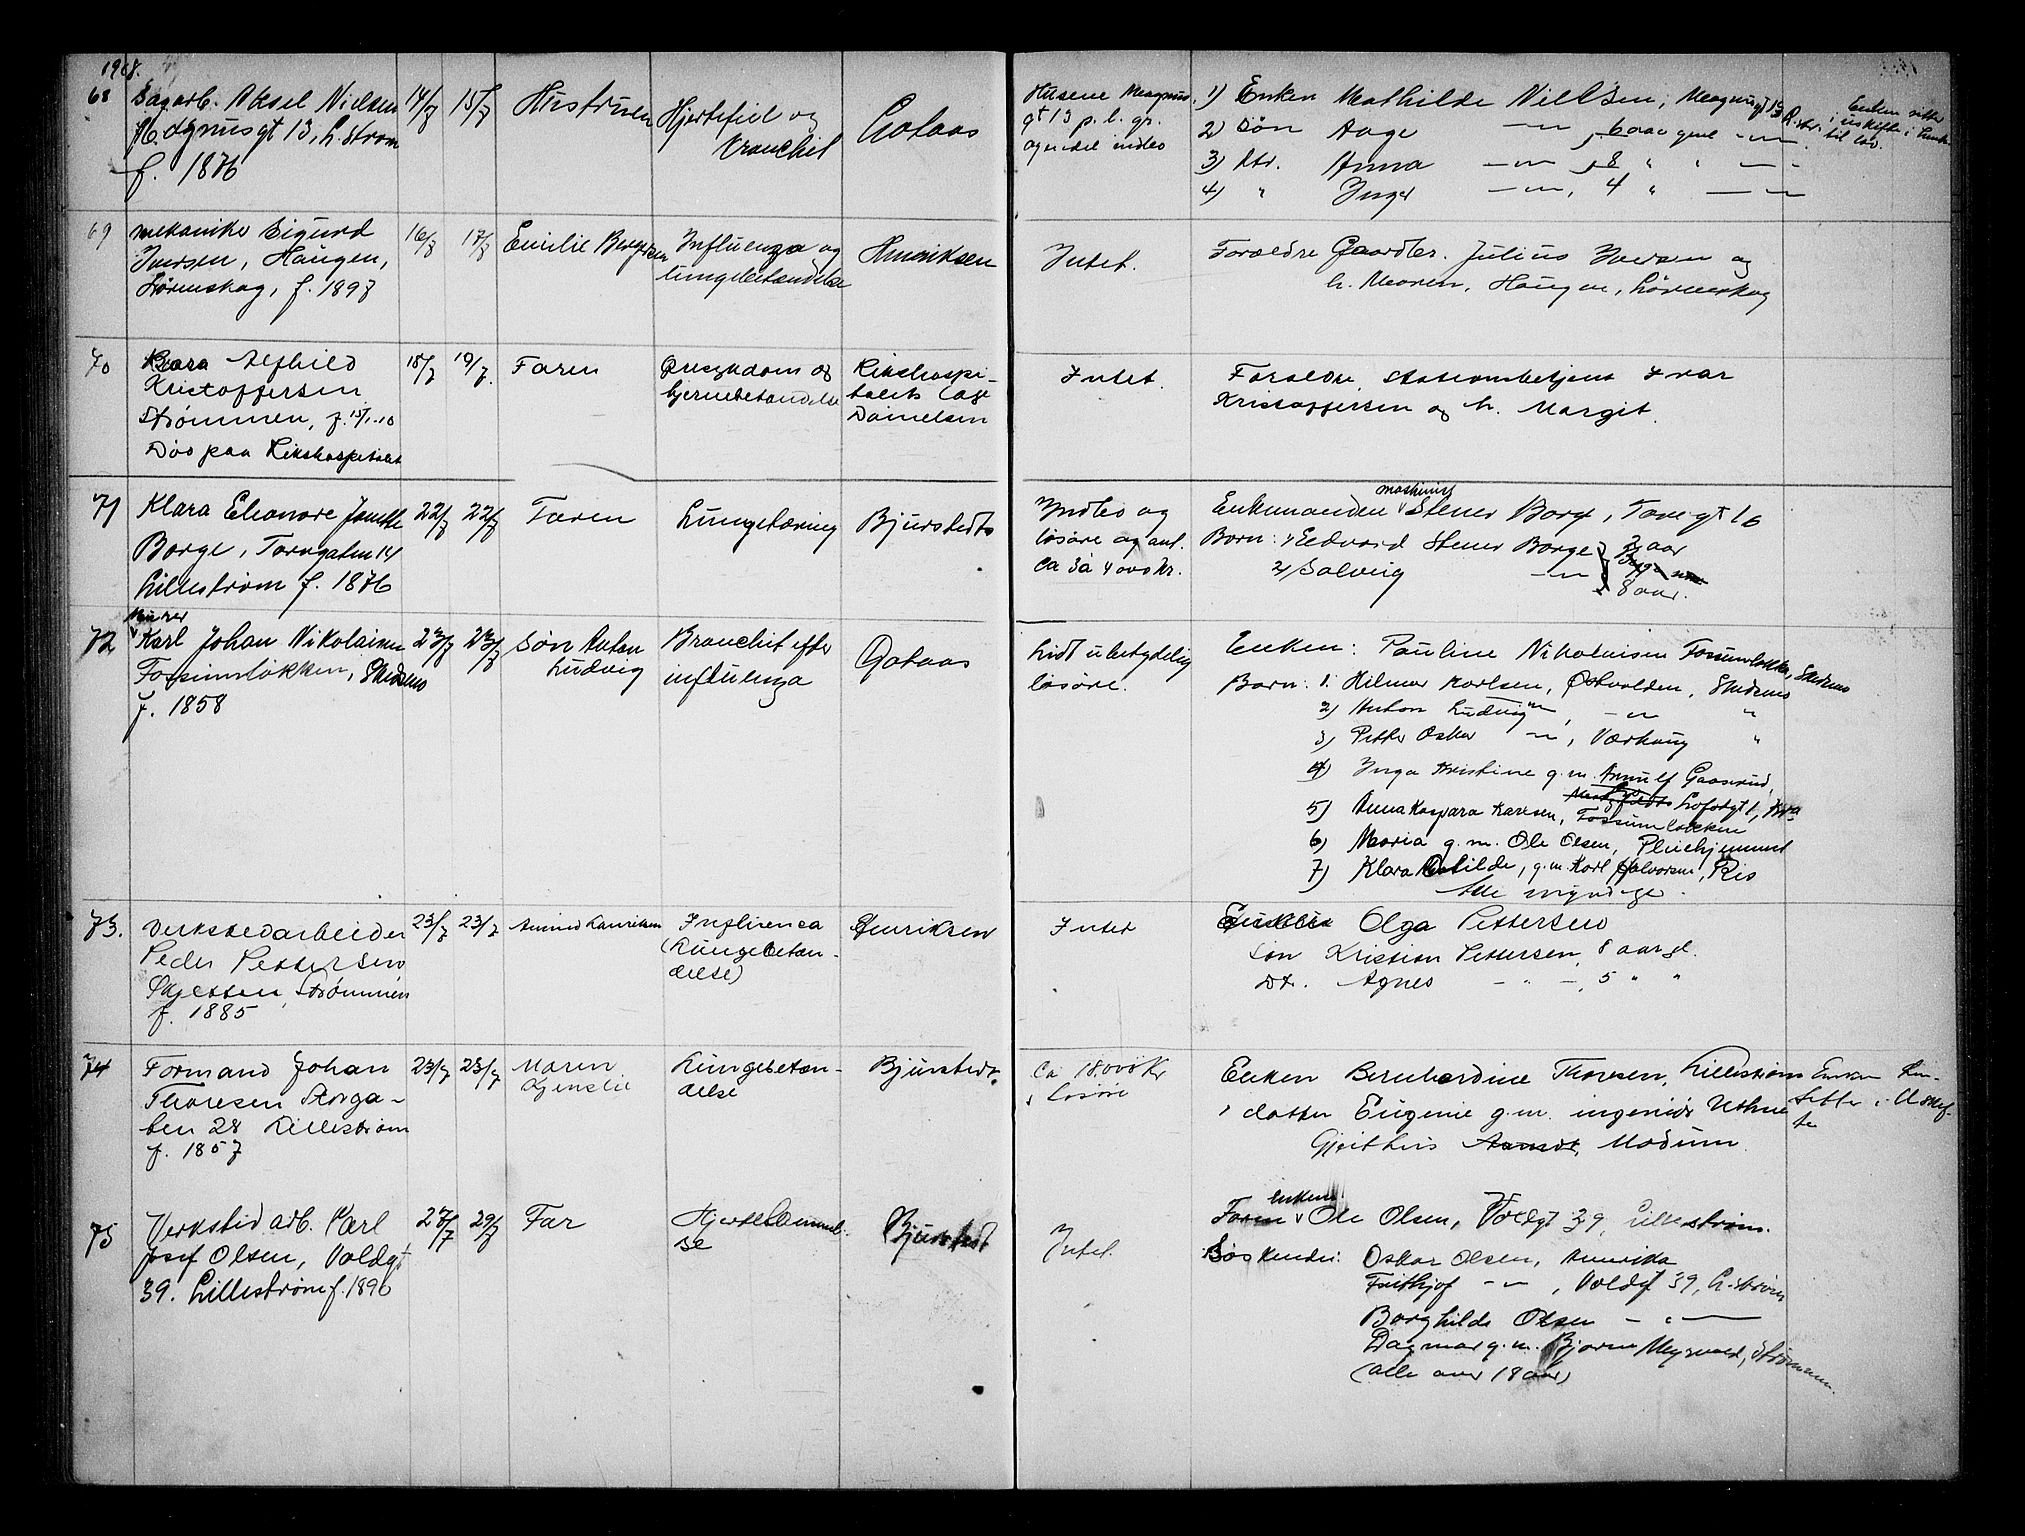 68
Sagarb. Aksel Nielsen
Magnusgt 13, L.strøm
f. 1876
14/7
15/7
Hustruen
Hjertefeil og
bronchit
Gotaas
Husene Magnus
gt 13 p. l. gr.
og endel indbo
1) Enken Mathilde Nielsen, Magnusgt 13 L.str.
2) Søn Aage — " — , 6 aar gml — " —
3) Dtr. Anna — " — , 8 " " — " —
4) " Inger — " — , 4 " — " —
Enken sitter
i uskifte i henh.
til lov.
69
mekaniker Sigurd
Iversen, Haugen,
Lørenskog, f. 1897
16/7
17/7
Emilie Bergersen
Influenza og
lungebetændelse
Henriksen
Intet.
Forældre Gaardbr. Julius Iversen og
h. Maren, Haugen, Lørenskog
70
Alfhild
Kristoffersen
Strømmen, f. 15/1-10
Død paa Rikshospitalet
18/7
19/7.
Faren
Øresykdom og
hjernebetændelse
Rikshospi-
talets læge
Danielsen
Intet.
Forældre, stationsbetjent Ivar
Kristoffersen og h. Margit.
71
Klara Eleonore
Borge, Torvgaten 14
Lillestrøm f. 1876
22/7
22/7
Faren
Lungetæring
Bjurstedt
Indbo og
løsøre og ant.
ca 3 à 4000 kr.
Enkemanden maskinist Stener Borge, Torvgt 16
Børn: 1) Edvard Stener Borge, aar
2) Solveig — " — 8 aar.
72
Murer
Karl Johan Nikolaisen
Fossumløkken, Skedsmo
f. 1858
23/7
23/7
Søn Anton
Ludvig
Bronchit efter
influenza
Gotaas
Lidt ubetydelig
løsøre.
Enken: Pauline Nikolaisen Fossumløkken, Skedsmo
Børn: 1. Hilmar Karlsen, Østvolden, Skedsmo
2) Anton Ludvig — " — , — " — "
3) Petter Oskar — " — , Værhaug "
4) Inga Kristine g.m. Arnulf Gaaserud,
Lofotgt 1, Kra
5) Anna Kaspara Karlsen, Fossumløkken
6) Maria g. m. Ole Olsen, Pleiehjemmet
7) Klara Otilde, g.m. Karl Halvorsen, Ris
Alle myndige.
73.
Verkstedarbeider
Peder Pettersen
Skjetten, Strømmen
f. 1885
23/7
23/7
Influensa
(Lungebetæn-
delse)
Henriksen
Intet
Olga Pettersen
Søn Kristian Pettersen, 8 aar gl.
Dt. Agnes — " —, 5 " "
74
Formand Johan
Thoresen Storga-
ten 28 Lillestrøm
f. 1857
23/7
23/7
Maren
Lungebetæn-
delse
Bjurstedt
Ca 18.000 kr
i løsøre
Enken Bernhardine Thoresen, Lillestrøm
1 datter Eugenie g.m. ingeniør
Gjeithus Modum
Enken
sitter i Uskif-
te
75
Verksted arb. Karl
Josef Olsen, Voldgt
39. Lillestrøm f. 1896
27/7
29/7
Far
Hjertelammel-
se
Bjurstedt
Intet.
Enkem.
Faren Ole Olsen, Voldgt 39, Lillestrøm.
Søskende: Oskar Olsen, Amerika
Frithjof — " — , Voldgt 39, L.strøm
Borghilde Olsen — " —
Dagmar g.m. Bjarne Myrvold, Strømmen.
(alle over 18 aar)